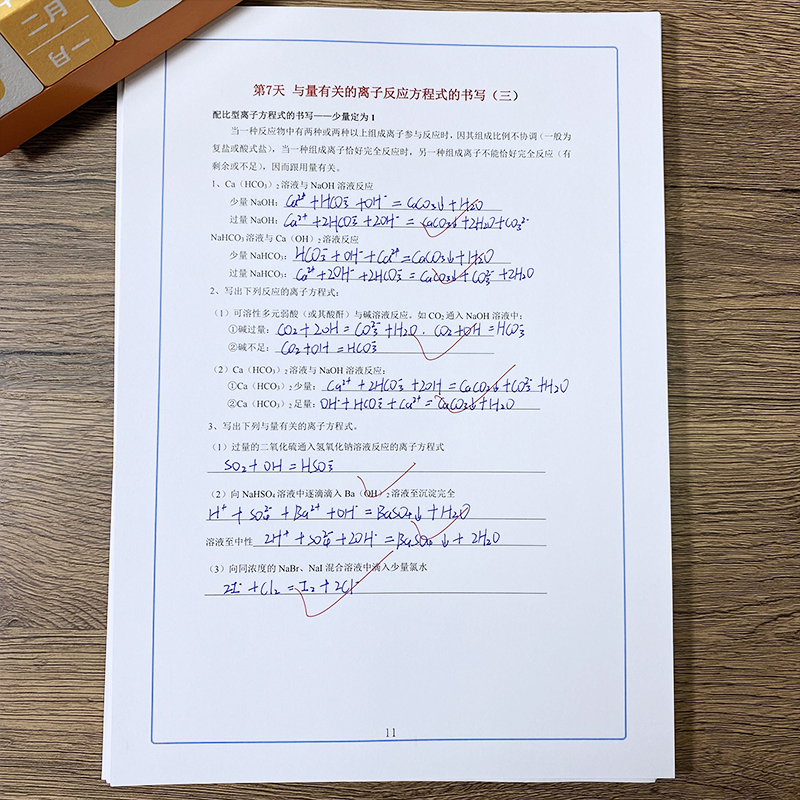 二月
廿一
第7天 与量有关的离子反应方程式的书写（三）
配比型离子方程式的书写——少量定为1
当一种反应物中有两种或两种以上组成离子参与反应时，因其组成比例不协调（一般为
复盐或酸式盐），当一种组成离子恰好完全反应时，另一种组成离子不能恰好完全反应（有
剩余或不足），因而跟用量有关。
1、Ca（HCO₃）₂溶液与NaOH溶液反应
少量NaOH：Ca²⁺+HCO₃⁻+OH⁻=CaCO₃↓+H₂O
过量NaOH：Ca²⁺+2HCO₃⁻+2OH⁻=CaCO₃↓+2H₂O+CO₃²⁻
NaHCO₃溶液与Ca（OH）₂溶液反应
少量NaHCO₃：HCO₃⁻+OH⁻+Ca²⁺=CaCO₃↓+H₂O
过量NaHCO₃：Ca²⁺+2OH⁻+2HCO₃⁻=CaCO₃↓+CO₃²⁻+2H₂O
2、写出下列反应的离子方程式：
（1）可溶性多元弱酸（或其酸酐）与碱溶液反应。如CO₂通入NaOH溶液中：
①碱过量：CO₂+2OH⁻=CO₃²⁻+H₂O．CO₂+OH⁻=HCO₃⁻
②碱不足：CO₂+OH⁻=HCO₃⁻
（2）Ca（HCO₃）₂溶液与NaOH溶液反应：
①Ca（HCO₃）₂少量：Ca²⁺+2HCO₃⁻+2OH⁻=CaCO₃↓+CO₃²⁻+H₂O
②Ca（HCO₃）₂足量：OH⁻+HCO₃⁻+Ca²⁺=CaCO₃↓+H₂O
3、写出下列与量有关的离子方程式。
（1）过量的二氧化硫通入氢氧化钠溶液反应的离子方程式
SO₂+OH⁻=HSO₃⁻
（2）向NaHSO₄溶液中逐滴滴入Ba（OH）₂溶液至沉淀完全
H⁺+SO₄²⁻+Ba²⁺+OH⁻=BaSO₄↓+H₂O
溶液至中性 2H⁺+SO₄²⁻+2OH⁻=BaSO₄↓+2H₂O
（3）向同浓度的NaBr、NaI混合溶液中滴入少量氯水
2I⁻+Cl₂=I₂+2Cl⁻
11